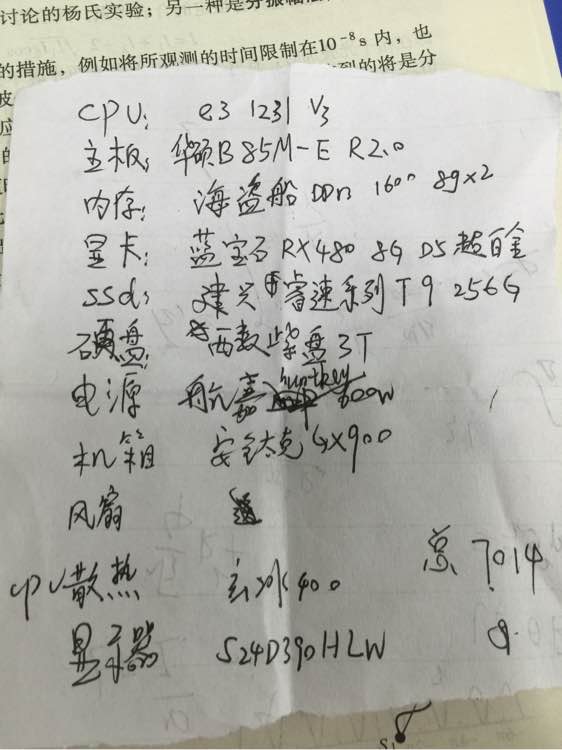 讨论的杨氏实验；另一种是分振幅
的措施，例如将所观测的时间限制在10⁻⁸s 内，也
到的将是分
CPU: e3 1231 V3
主板: 华硕B85M-E R2.0
内存: 海盗船 DDR3 1600 8g×2
显卡: 蓝宝石 RX480 8G D5 超白金
SSd: 建兴 睿速系列 T9 256G
硬盘: 西数紫盘3T
电源 航嘉 huntkey 600W
机箱 安钛克GX900
风扇
CPU散热 玄冰400
总 7014
显示器 S24D390HLW